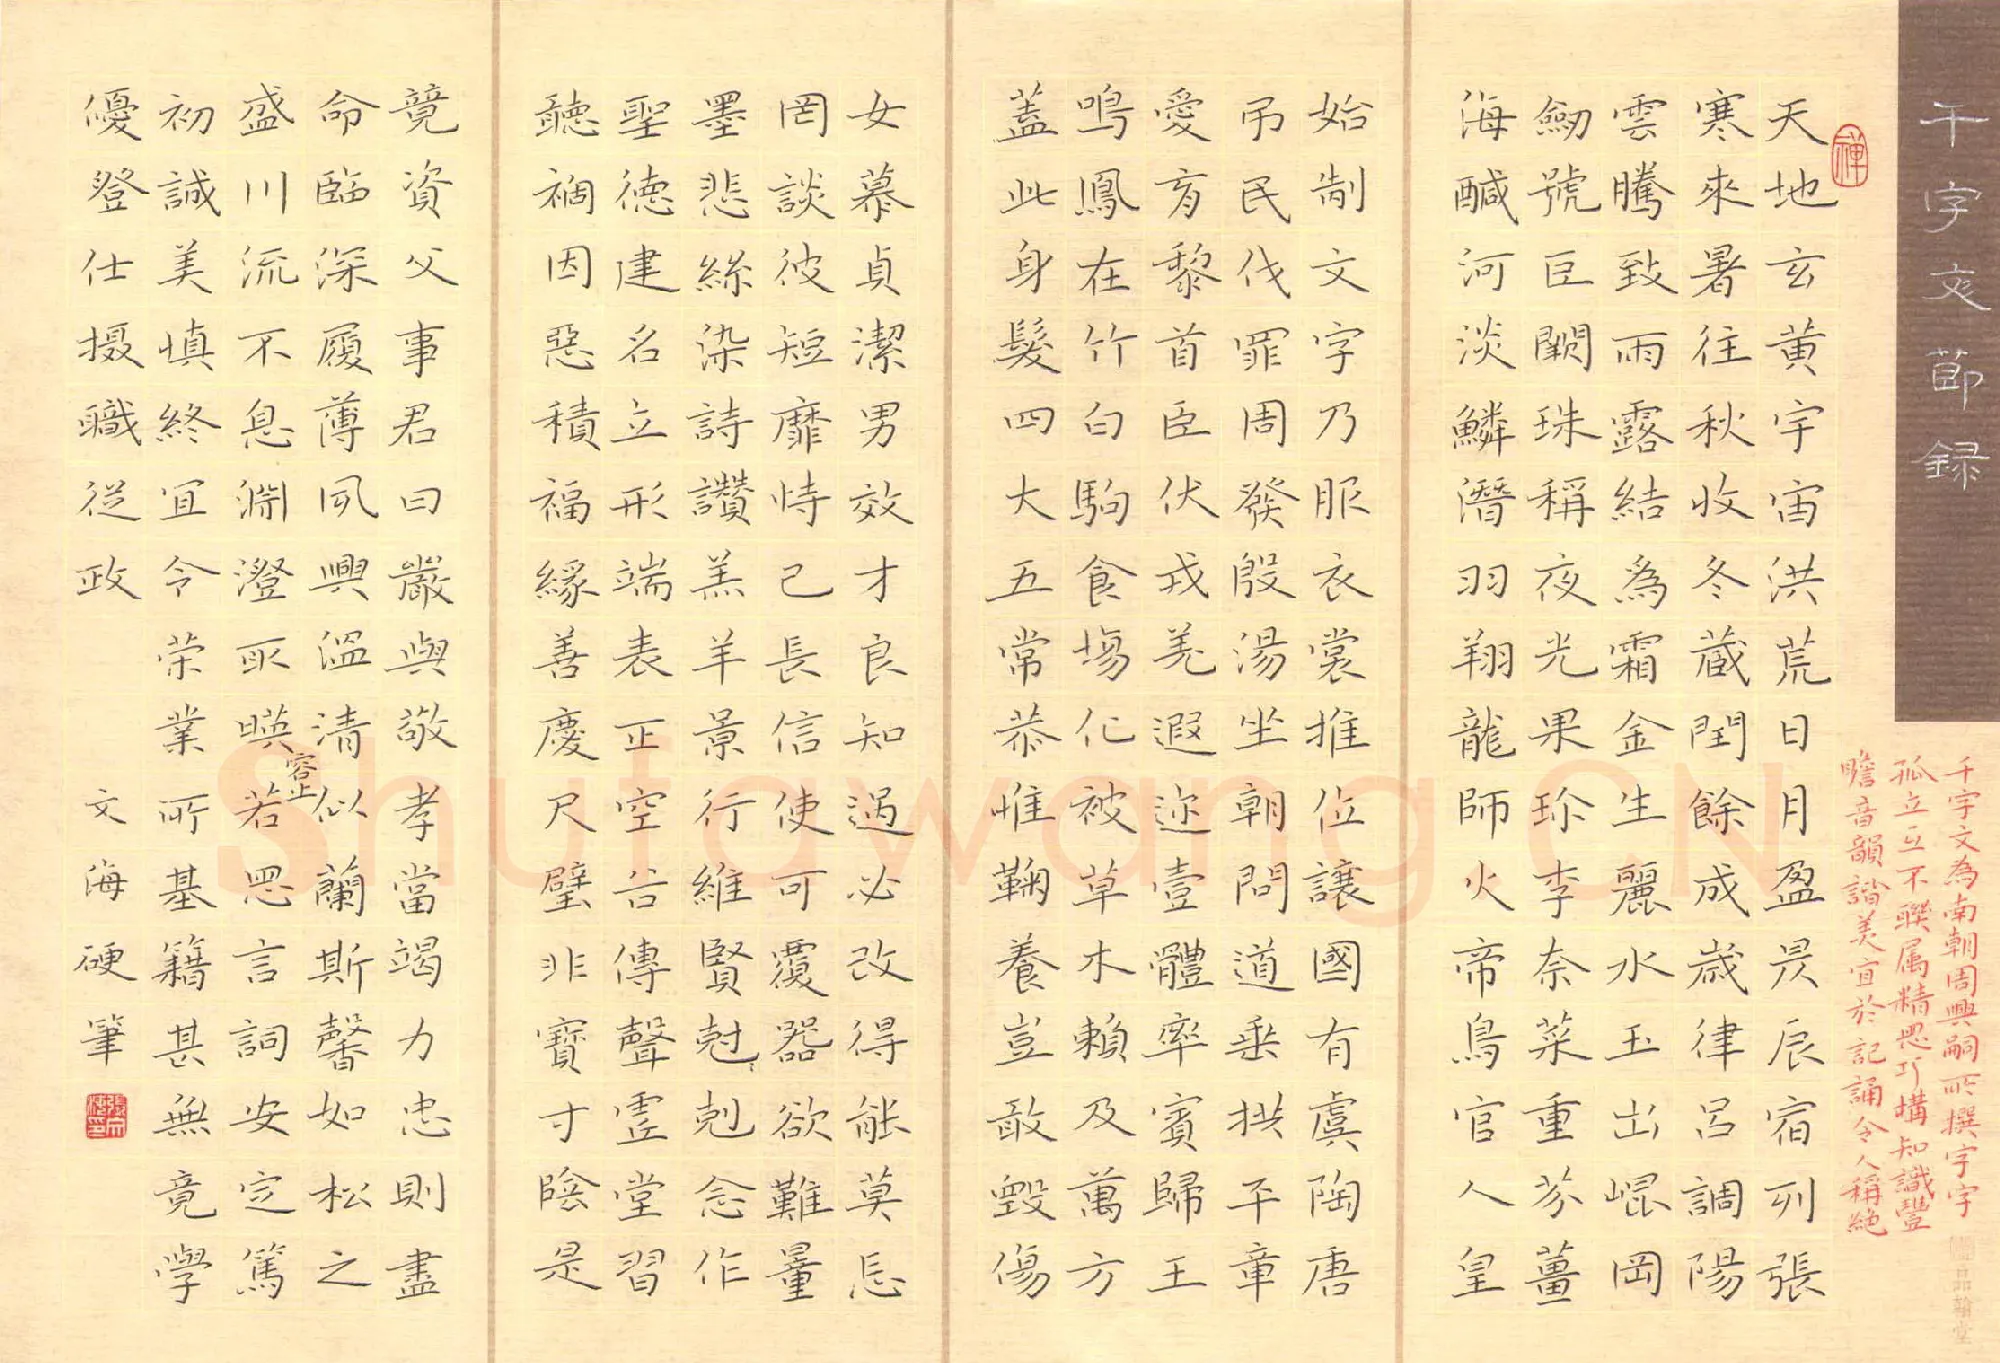 千字文節録
禅
天地玄黃宇宙洪荒日月盈昃辰宿列張
寒來暑往秋收冬蔵閏餘成歲律呂調陽
雲騰致雨露結為霜金生麗水玉出崐岡
劒號巨闕珠稱夜光果珍李奈菜重芥薑
海醎河淡鱗潛羽翔龍師火帝鳥官人皇
始制文字乃服衣裳推位讓國有虞陶唐
弔民伐罪周發殷湯坐朝問道垂拱平章
愛育黎首臣伏戎羌遐迩壹體率賓歸王
鳴鳳在竹白駒食場化被草木賴及萬方
蓋此身髮四大五常恭惟鞠養豈敢毀傷
女慕貞潔男效才良知過必改得能莫忘
罔談彼短靡恃己長信使可覆器欲難量
墨悲絲染詩讚羔羊景行維賢尅剋念作
聖德建名立形端表正空谷傳聲虛堂習
聽禍因惡積福緣善慶尺璧非寶寸陰是
竟資父事君曰嚴與敬孝當竭力忠則盡
命臨深履薄夙興溫清似蘭斯馨如松之
盛川流不息淵澄取暎容止若思言詞安定篤
初誠美慎終宜令榮業所基籍甚無竟學
優登仕攝職從政
文海硬筆
張文海印
千字文為南朝周興嗣所撰字字
孤立互不聯属精思巧構知識豐
瞻音韻諧美宜於記誦令人稱絶
Shufawang.CN